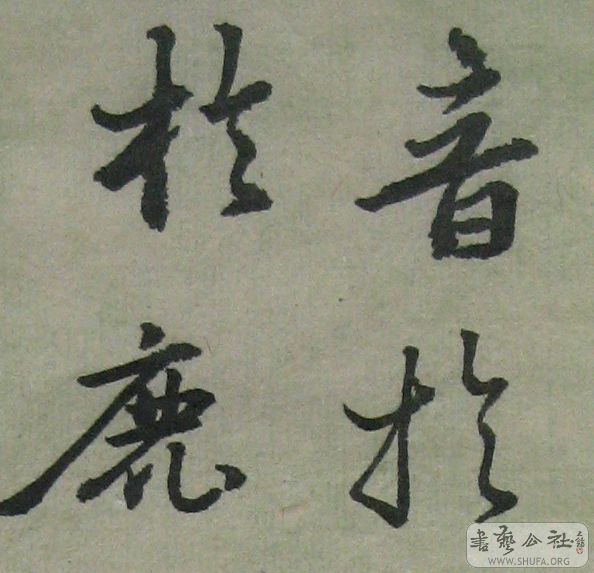 音於
於鹿
書藝公社
WWW.SHUFA.ORG